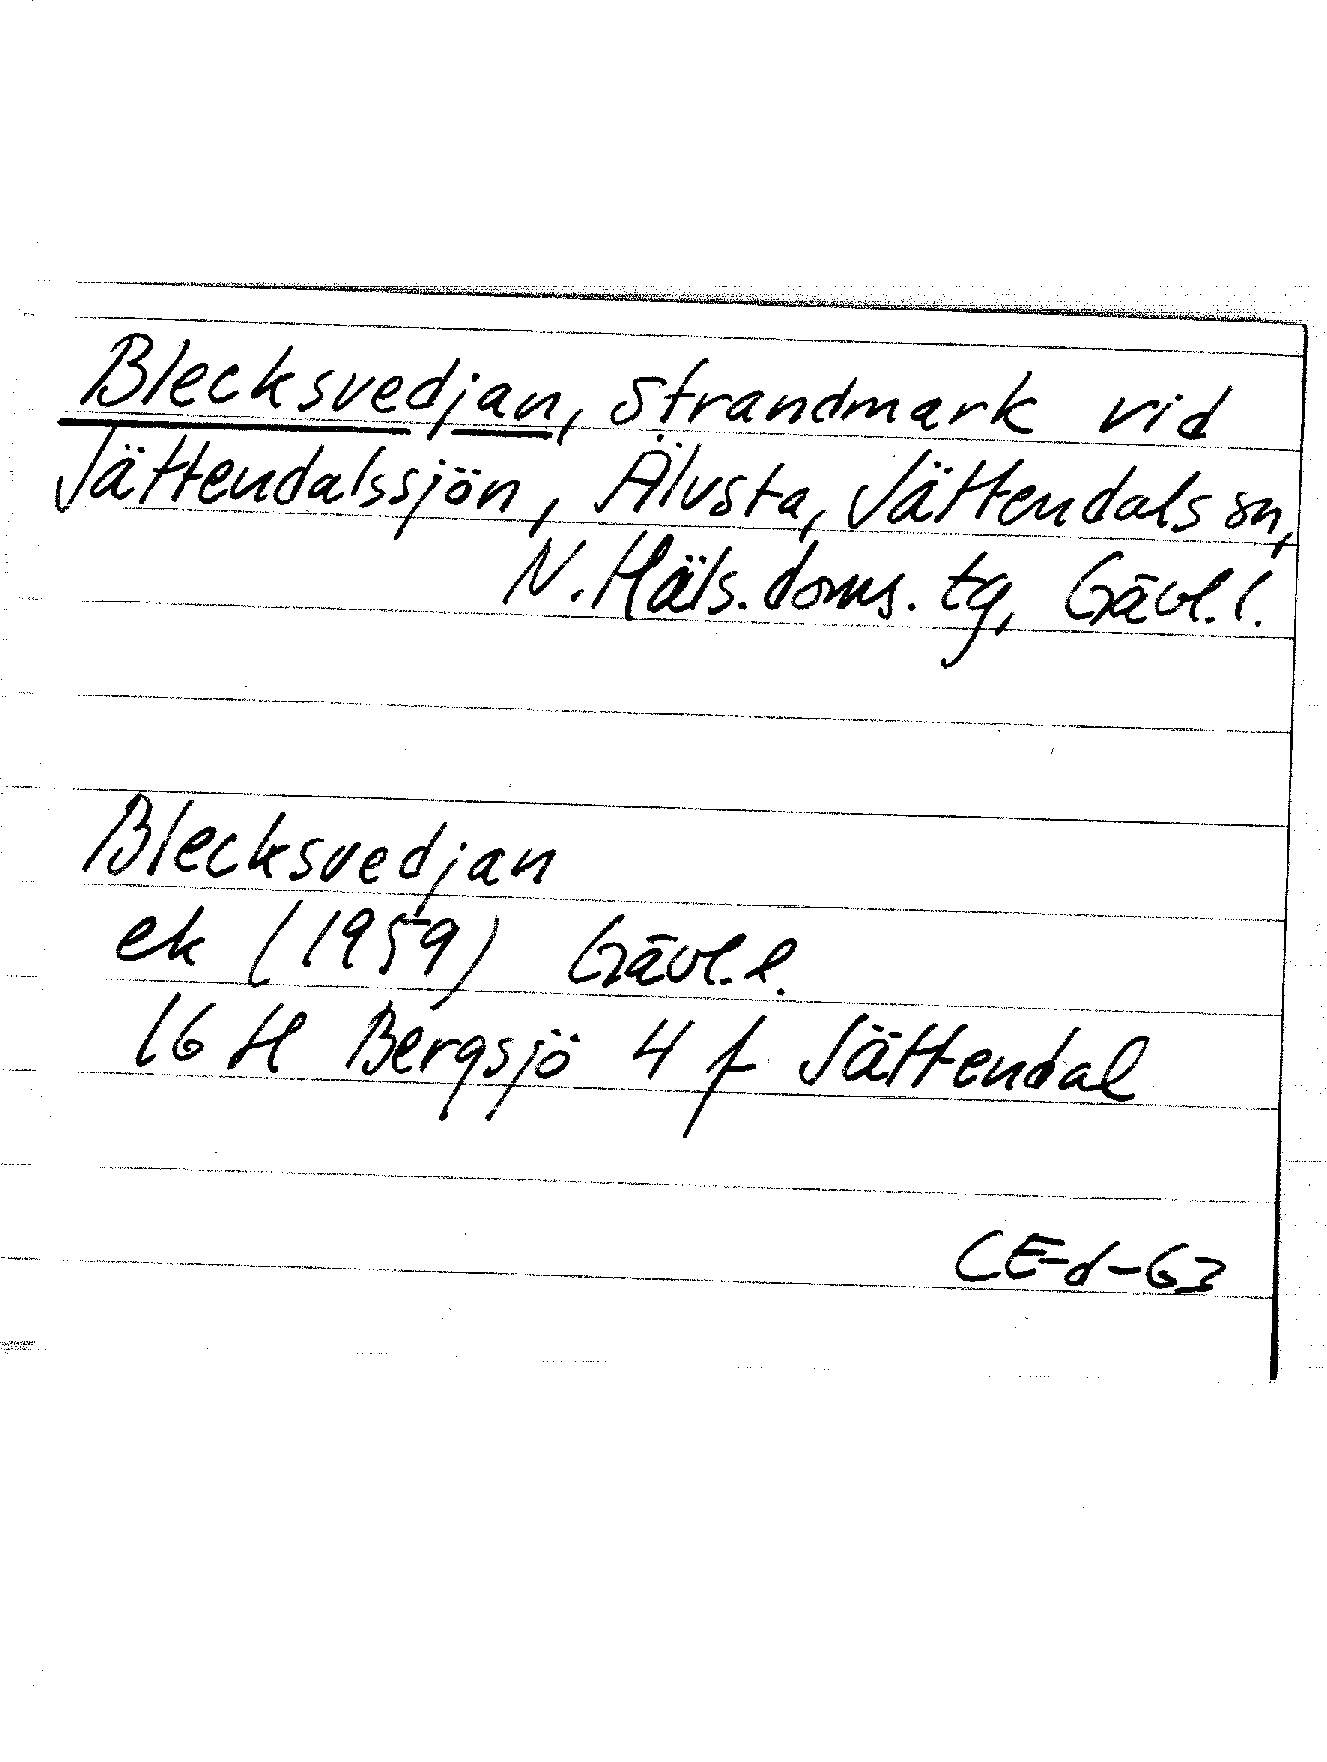 Blecksvedjan, Strandmark vid
Jättendalssjön, Älvsta, Jättendals sn,
N. Häls. doms. tg, Gävl. l.
Blecksvedjan
ek (1959) Gävl. l.
16 H Bergsjö 4 f Jättendal
CE-d-63